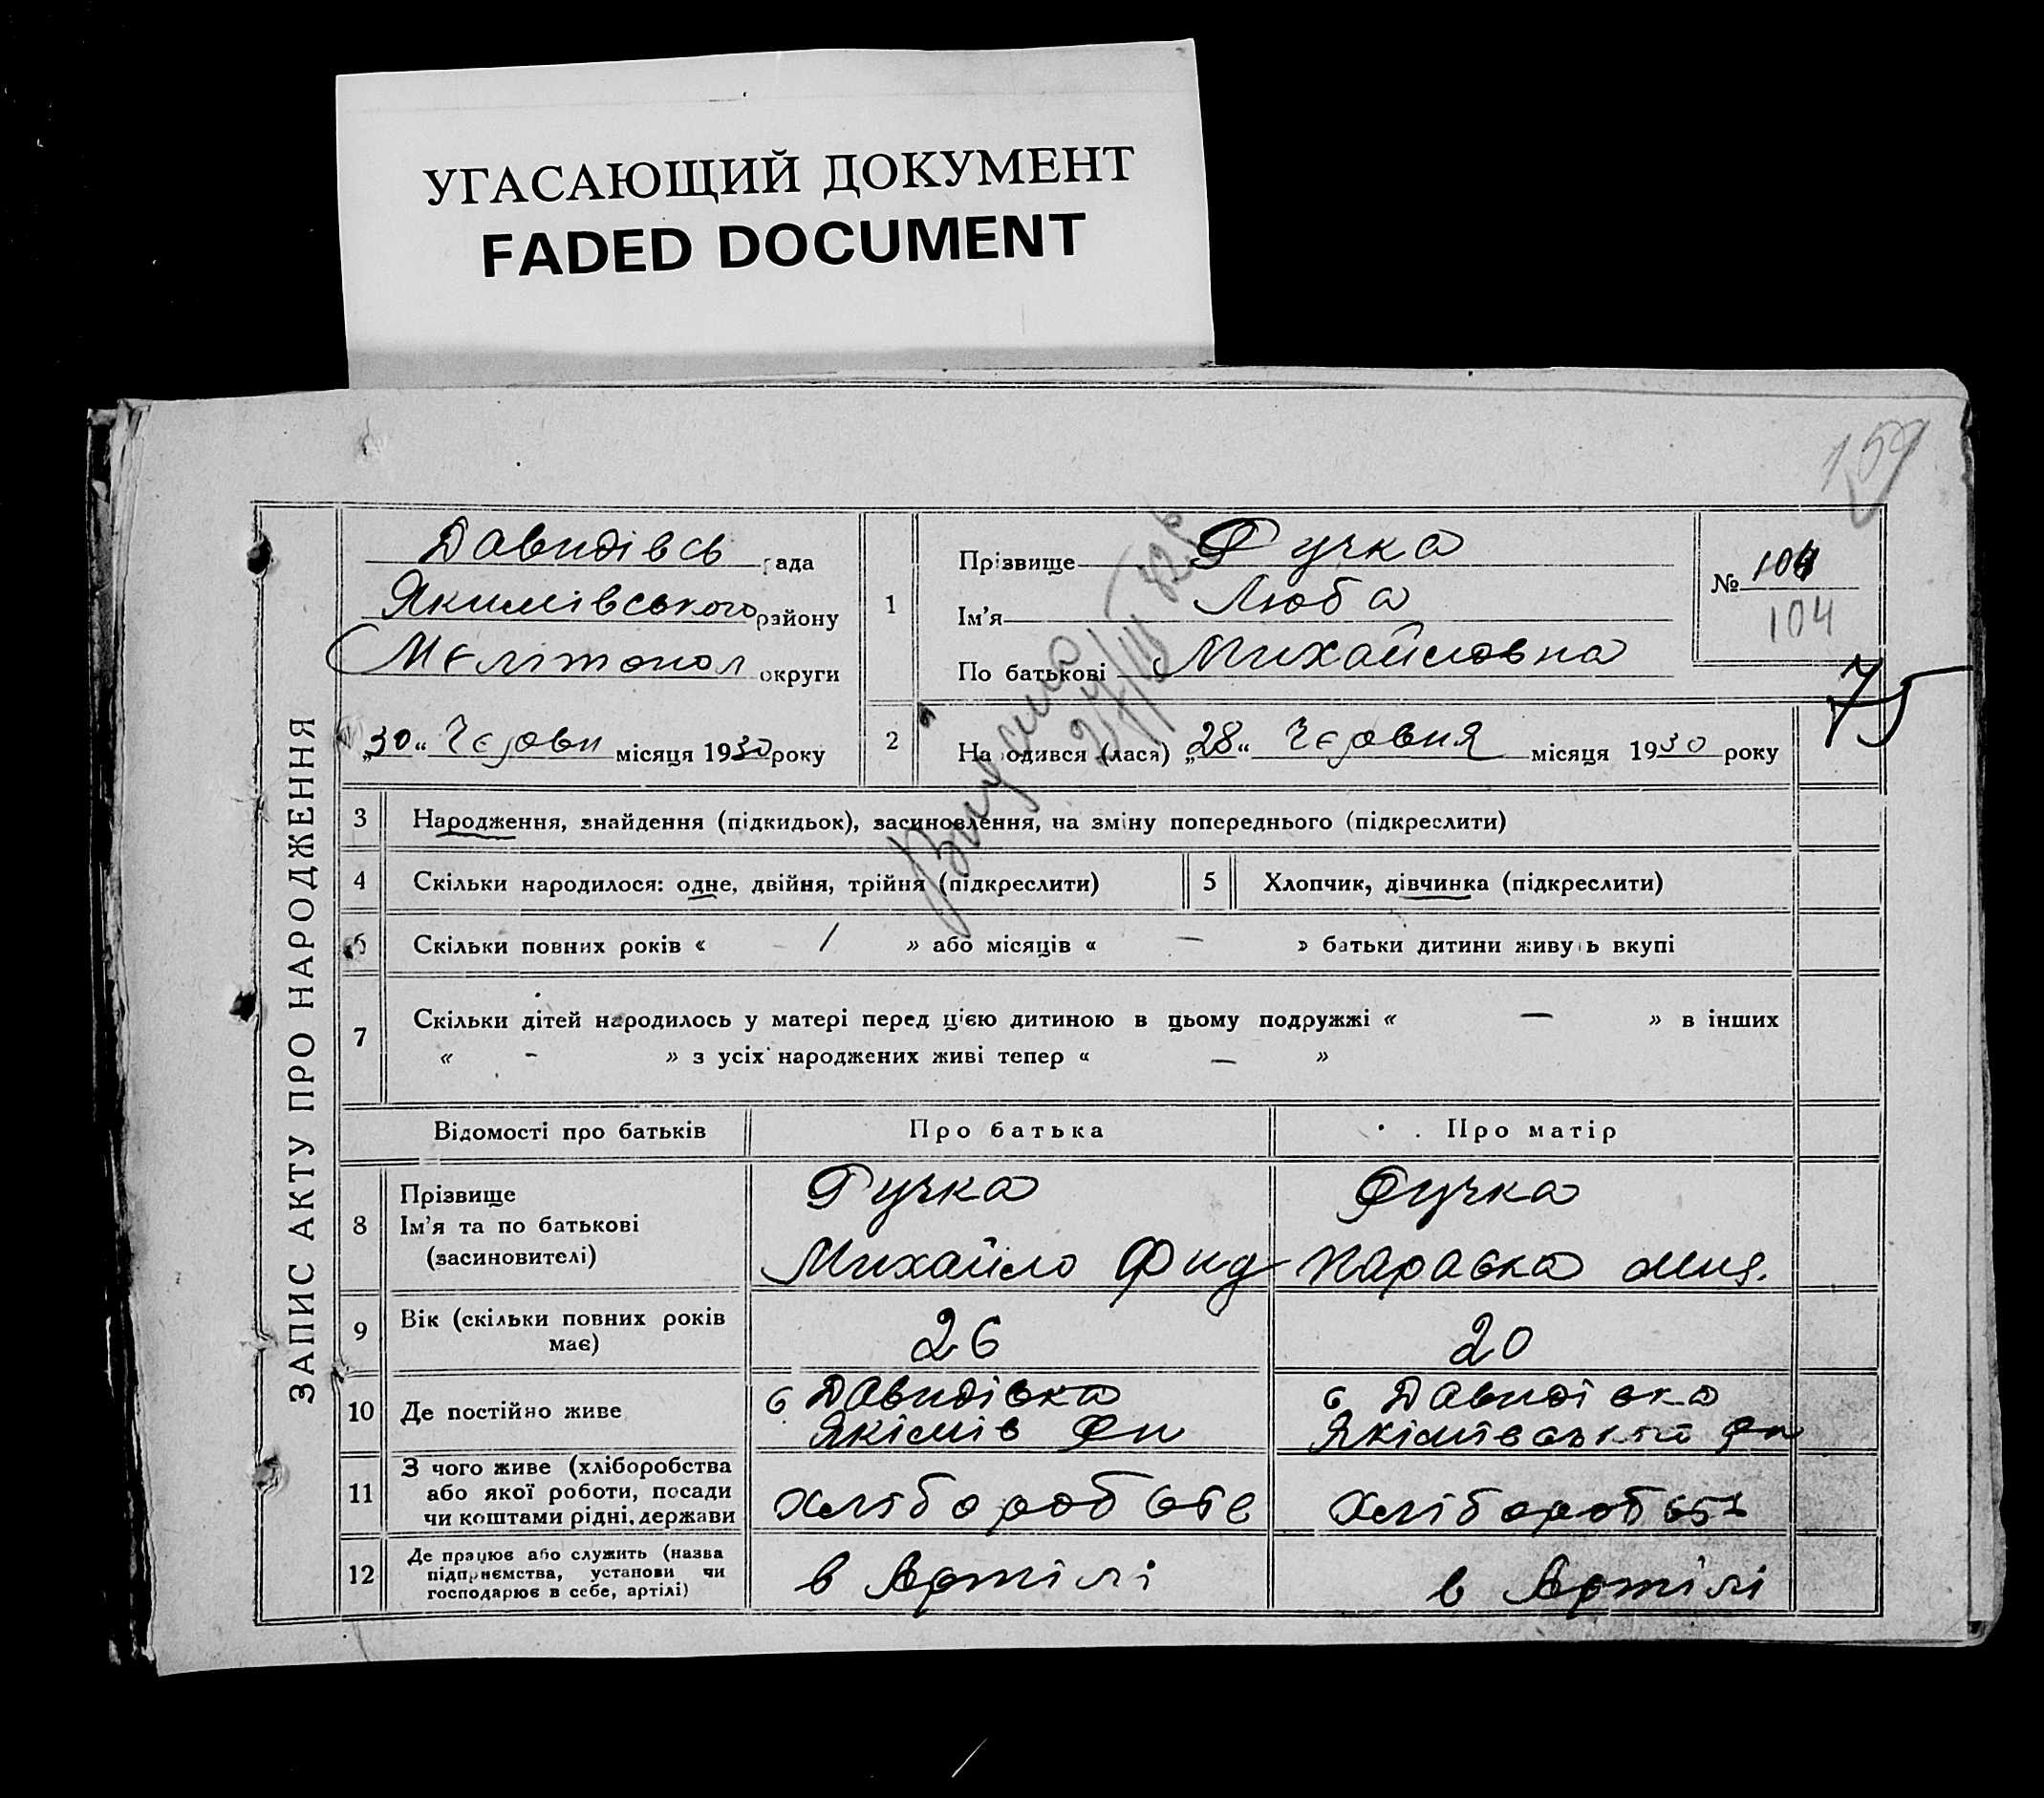 УГАСАЮЩИЙ ДОКУМЕНТ
FADED DOCUMENT
159
ЗАПИС АКТУ ПРО НАРОДЖЕННЯ
Давидівсь рада
Якимівського району
Мелітопол округи
„30“ Червн місяця 1930 року
1
Прізвище Ручка
Ім’я Люба
По батькові Михайловна
№ 104
104
75
2
Народився (лася) „28“ Червня місяця 1930 року
3 Народження, знайдення (підкидьок), засиновлення, на зміну попереднього (підкреслити)
4 Скільки народилося: одне, двійня, трійня (підкреслити)
5 Хлопчик, дівчинка (підкреслити)
6 Скільки повних років « 1 » або місяців « — » батьки дитини живуть вкупі
7 Скільки дітей народилось у матері перед цією дитиною в цьому подружжі « — » в інших
« - » з усіх народжених живі тепер « — »
Відомості про батьків
Про батька
Про матір
8
Прізвище
Ім’я та по батькові
(засиновителі)
Ручка
Михайло Фид
Ручка
Параска
9
Вік (скільки повних років
має)
26
20
10 Де постійно живе
с Давидівка
Якімів Рн
с Давидівка
Якімівський Рн
11
З чого живе (хліборобства
або якої роботи, посади
чи коштами рідні, держави
Хлібороб
Хлібороб
12
Де працює або служить (назва
підприємства, установи чи
господарює в себе, артілі)
в Артілі
в Артілі